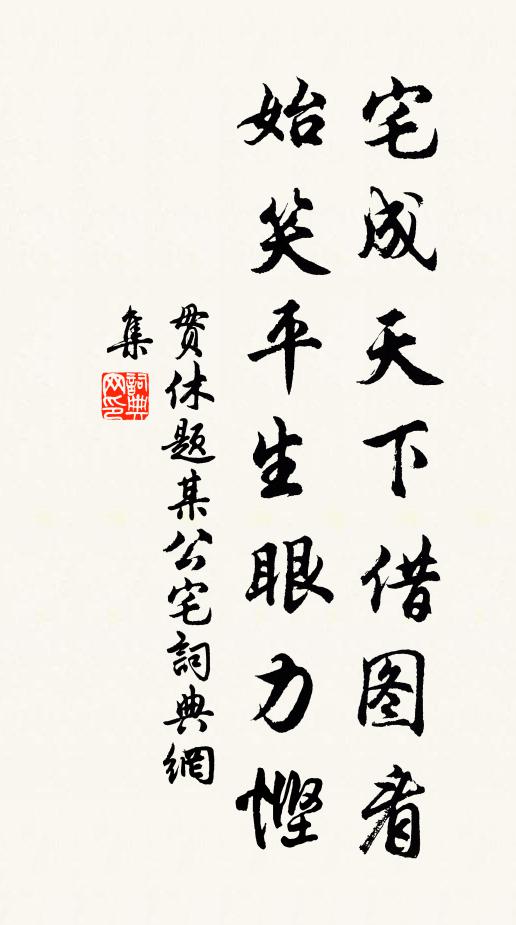 宅成天下借图看
始笑平生眼力悭
贯休题某公宅詞典網
集
詞典
网印